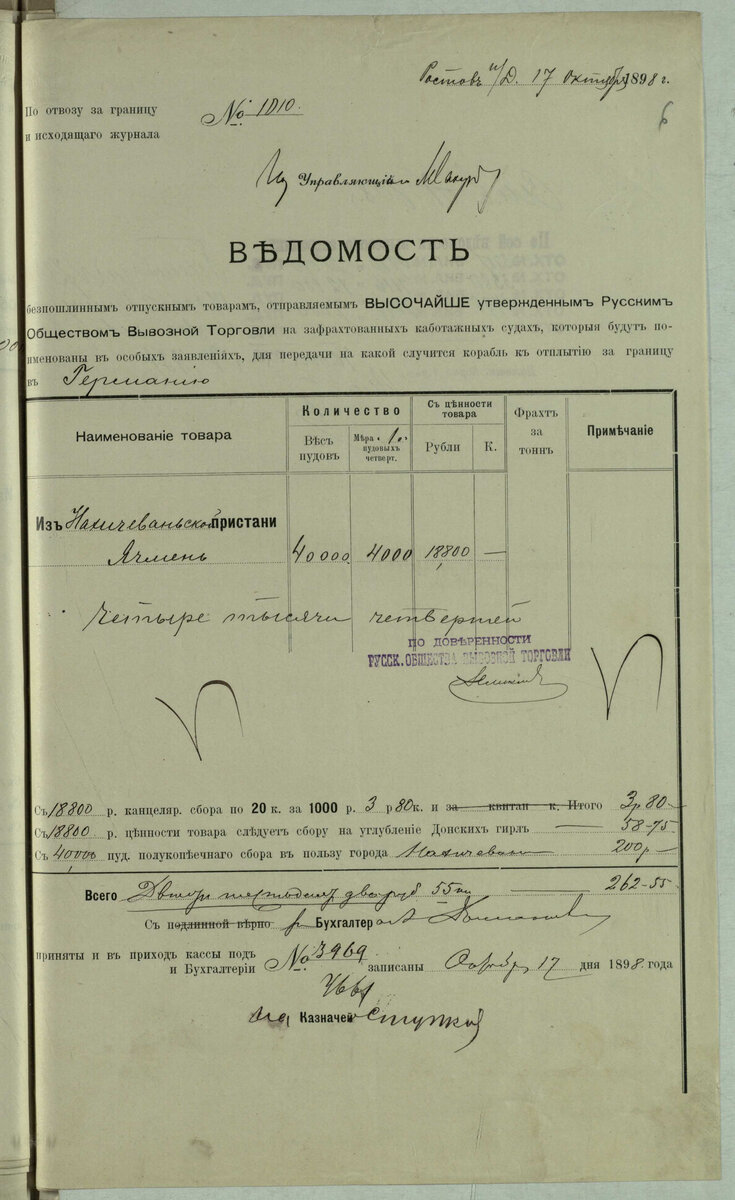 Ростовъ н/Д. 17 Октября 1898 г.
6
По отвозу за границу
и исходящаго журнала
№ 1010.
Управляющій
ВѢДОМОСТЬ
безпошлиннымъ отпускнымъ товарамъ, отправляемымъ ВЫСОЧАЙШЕ утвержденнымъ Русскимъ
Обществомъ Вывозной Торговли на зафрахтованныхъ каботажныхъ судахъ, которыя будутъ по-
именованы въ особыхъ заявленіяхъ, для передачи на какой случится корабль къ отплытію за границу
въ Германію
Наименованіе товара
Количество
Вѣсъ пудовъ
Мѣра пудовыхъ четверт.
Съ цѣнности товара
Рубли
К.
Фрахтъ за тоннъ
Примѣчаніе
Изъ Нахичеваньской пристани
Ячмень 40000 4000 18800 —
Четыре тысячи четвертей
ПО ДОВѢРЕННОСТИ
РУССК. ОБЩЕСТВА ВЫВОЗНОЙ ТОРГОВЛИ
Съ 18800 р. канцеляр. сбора по 20 к. за 1000 р. 3 р 80 к. и за квитан к. Итого 3 р 80 —
Съ 18800 р. цѣнности товара слѣдуетъ сбору на углубленіе Донскихъ гирлъ — 58-75
Съ 40,000 пуд. полукопѣечнаго сбора въ пользу города Нахичевани 200 р —
Всего Двѣсти шестьдесят два руб 55 ко — 262-55
Съ подлинной вѣрно Бухгалтер
приняты и въ приходъ кассы подъ
и Бухгалтеріи № 3969 записаны Октября 17 дня 1898 года
Казначей